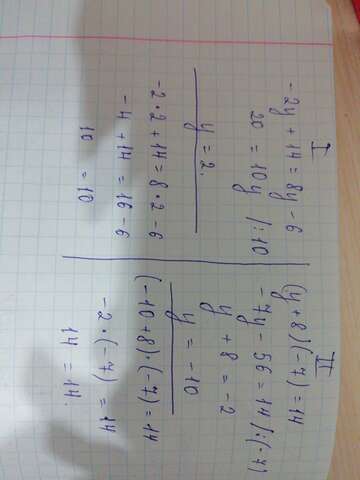 I
-2y + 14 = 8y - 6
20 = 10y /:10
y = 2.
-2·2 + 14 = 8·2 - 6
-4 + 14 = 16 - 6
10 = 10
II
(y + 8)·(-7) = 14
-7y - 56 = 14 /:(-7)
y + 8 = -2
y = -10
(-10 + 8)·(-7) = 14
-2·(-7) = 14
14 = 14.